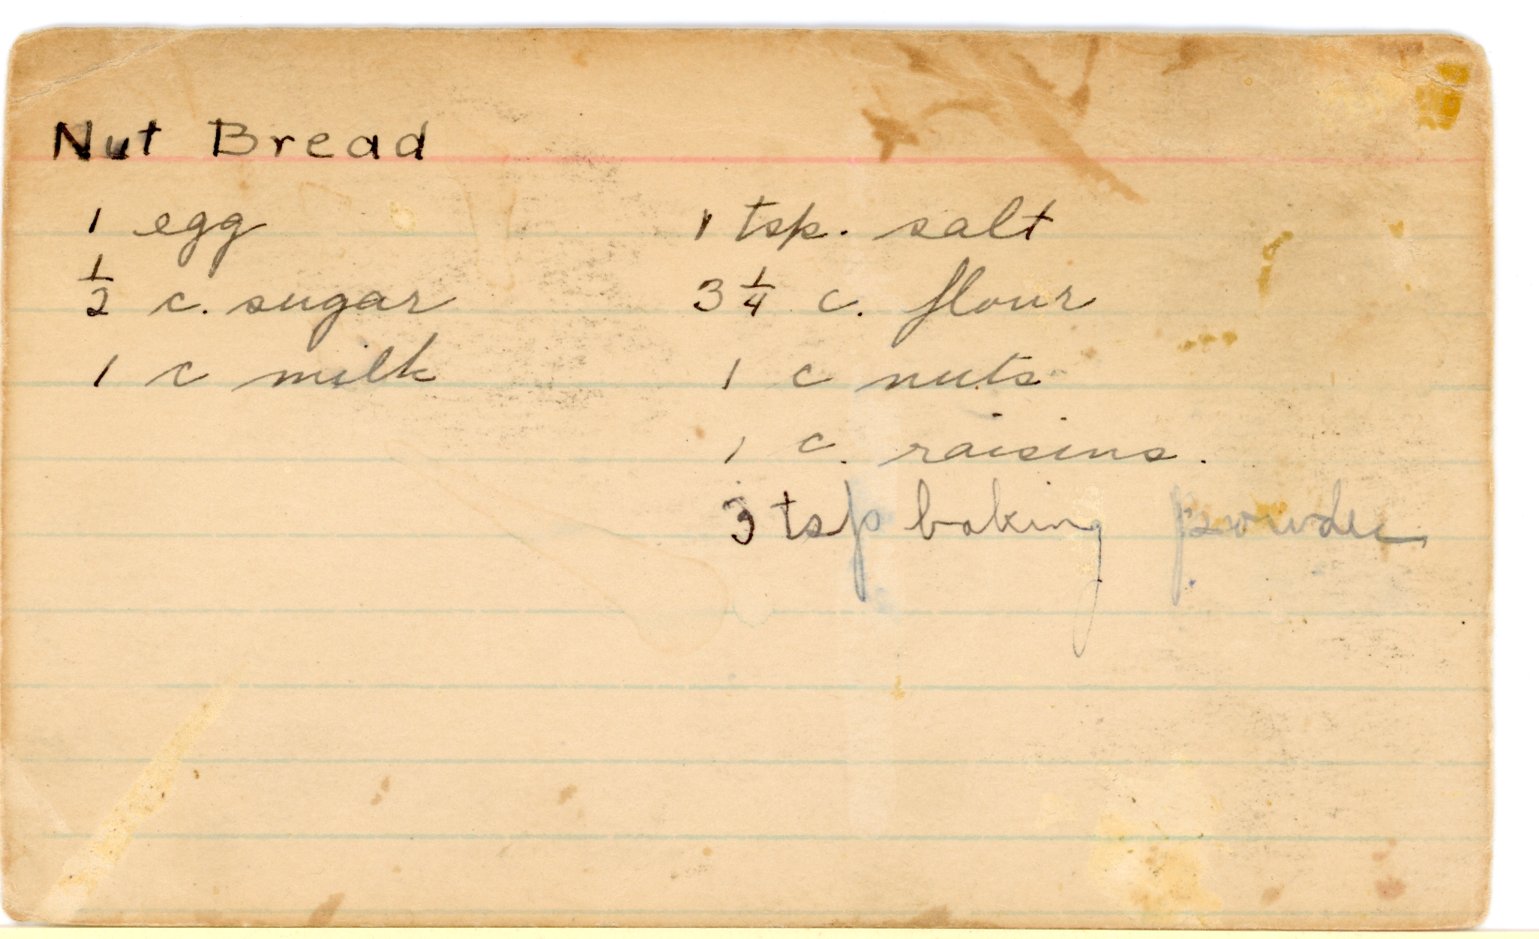 Nut Bread
1 egg
1/2 c. sugar
1 c milk
1 tsp. salt
3 1/4 c. flour
1 c nuts
1 c. raisins.
3 tsp baking powder